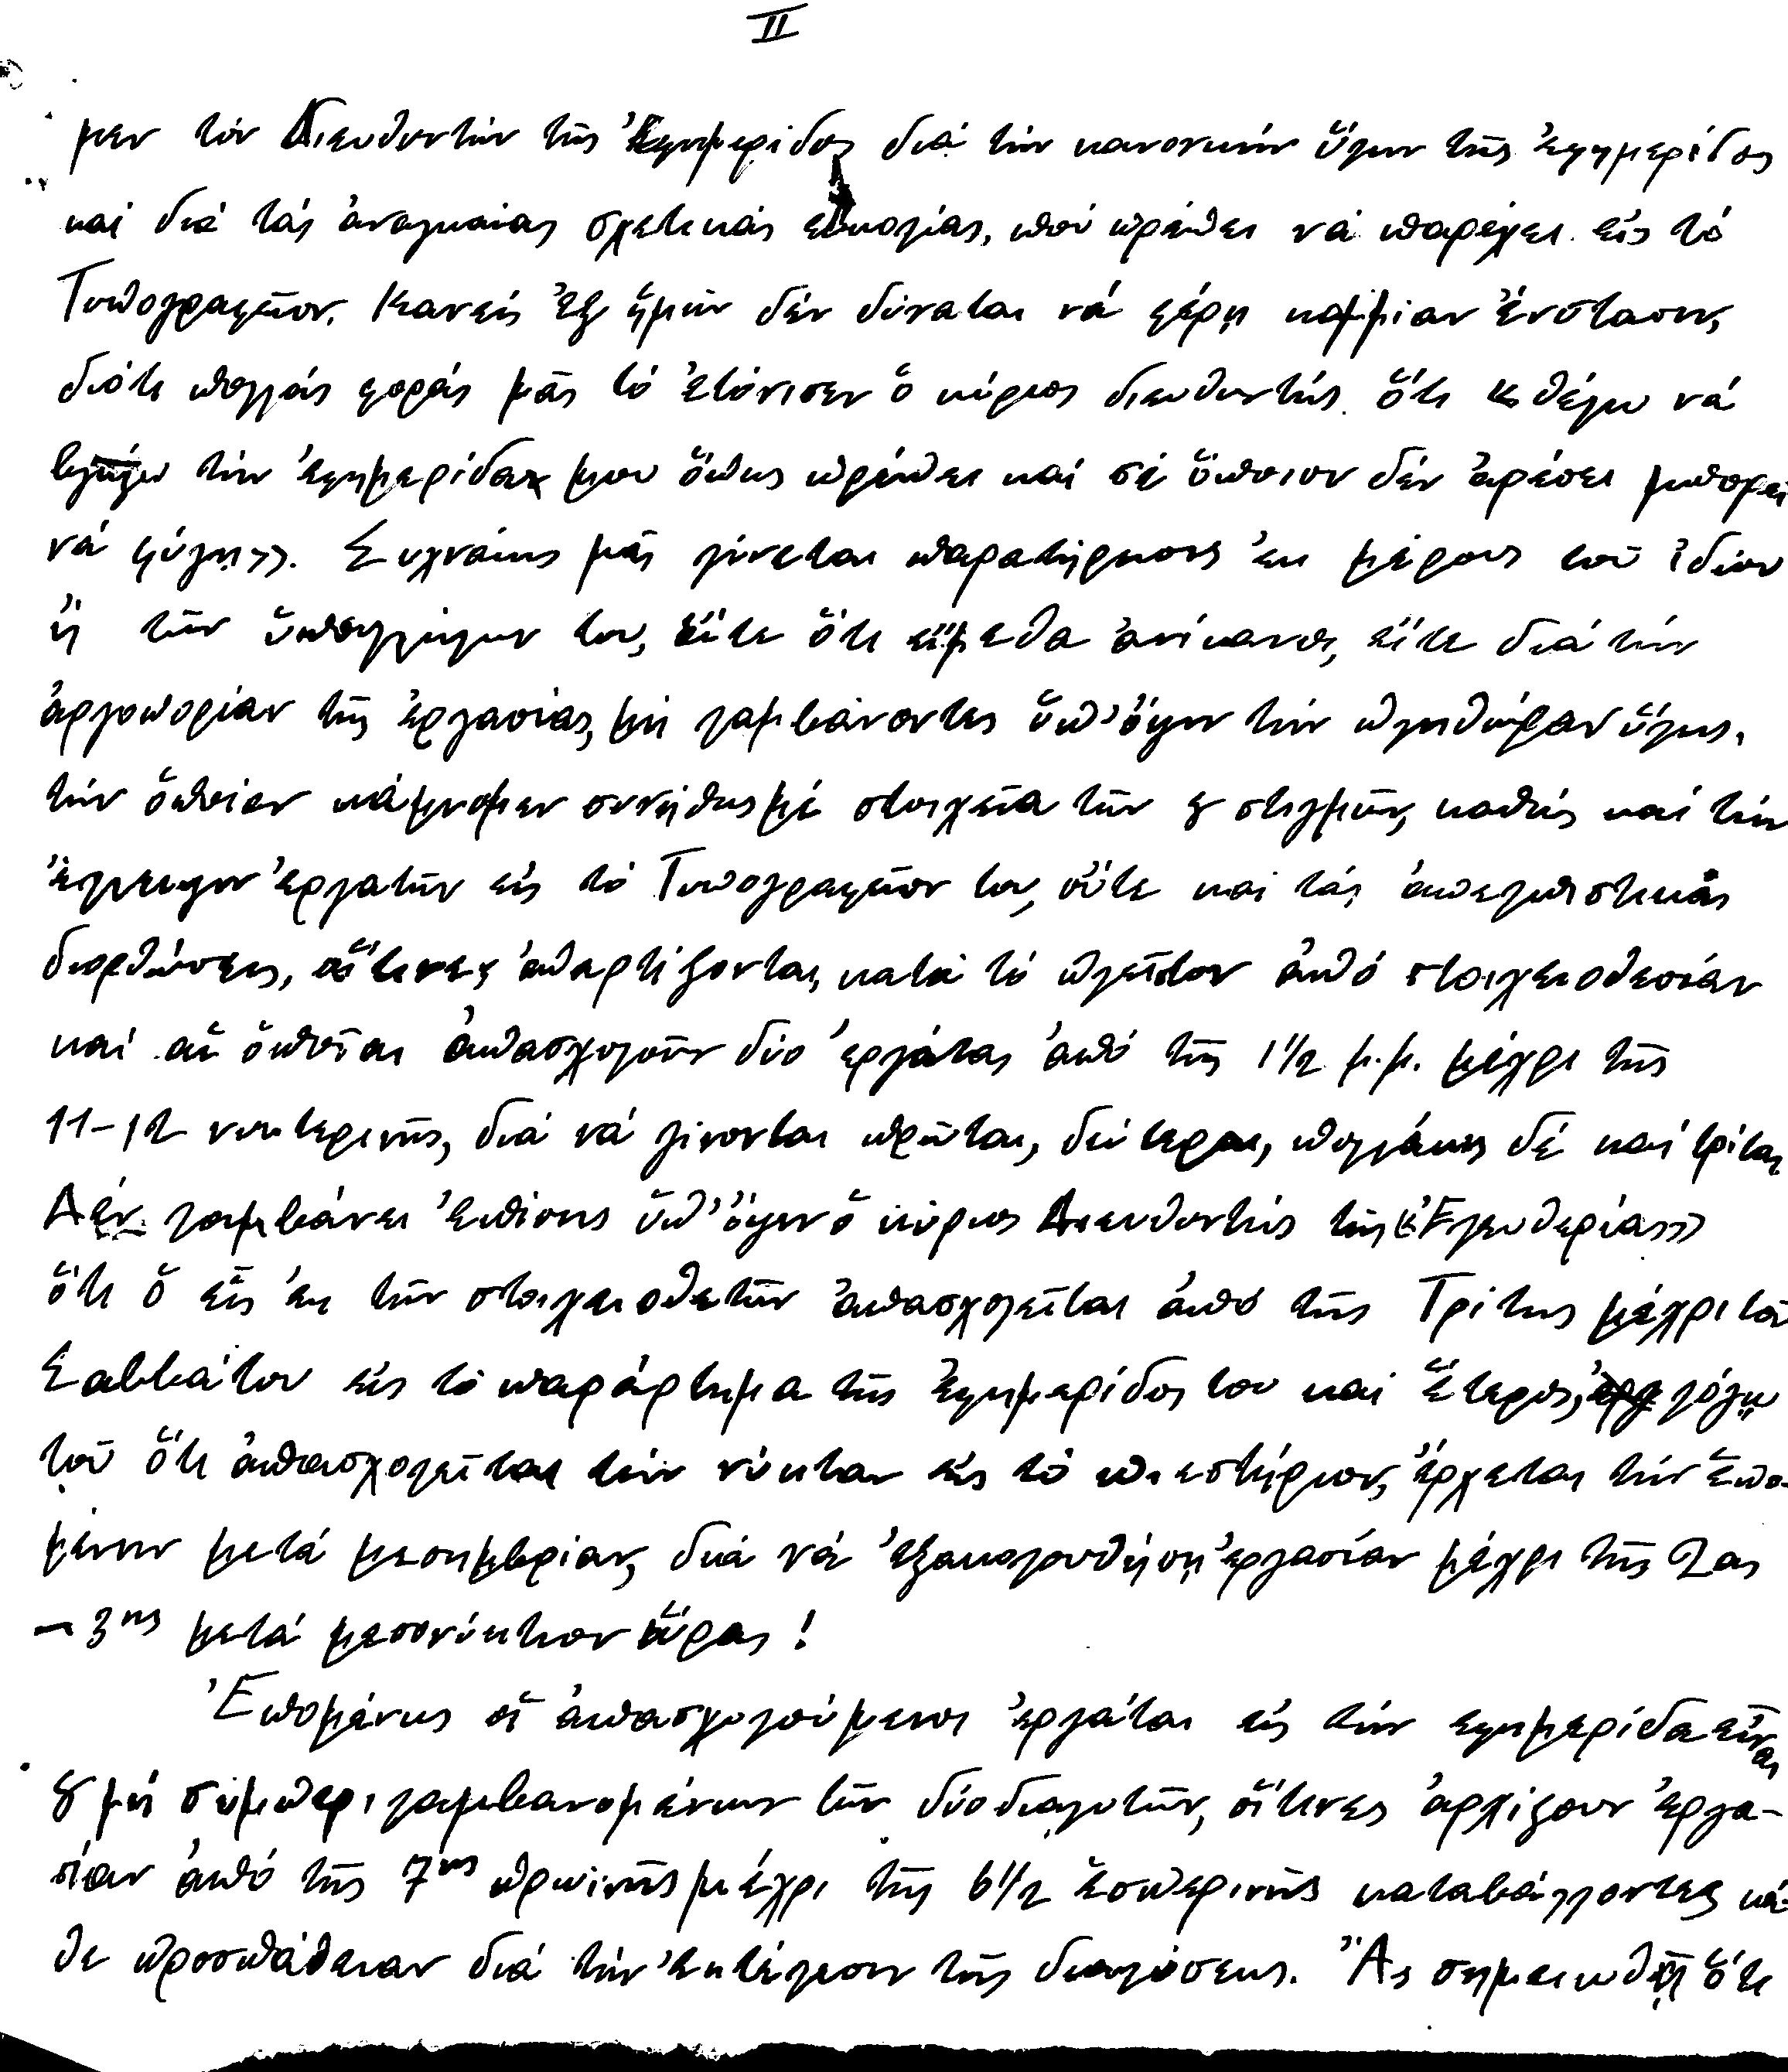 II
μεν τόν Διευθυντήν τῆς Ἐφημερίδος διά τήν κανονικήν ὕλην τῆς ἐφημερίδος
καί διά τάς ἀναγκαίας σχετικάς εὐκολίας, πού πρέπει νά παρέχει εἰς τό
Τυπογραφεῖον. Κανείς ἐξ ἡμῶν δέν δύναται νά φέρῃ καμμίαν ἔνστασιν,
διότι πολλάς φοράς μᾶς τό ἐτόνισεν ὁ κύριος διευθυντής ὅτι «θέλω νά
βγάζω τήν ἐφημερίδα μου ὅπως πρέπει καί σέ ὅποιον δέν ἀρέσει μπορεῖ
νά φύγῃ». Συχνάκις μᾶς γίνεται παρατήρησις ἐκ μέρους τοῦ ἰδίου
ἤ τῶν ὑπαλλήλων του, εἴτε ὅτι εἴμεθα ἀνίκανοι, εἴτε διά τήν
ἀργοπορίαν τῆς ἐργασίας, μή λαμβάνοντες ὑπ' ὄψιν τήν πληθώραν ὕλης,
τήν ὁποίαν κάμνομεν συνήθως μέ στοιχεῖα τῶν 8 στιγμῶν, καθώς καί τήν
ἔλλειψιν ἐργατῶν εἰς τό Τυπογραφεῖον του, οὔτε καί τάς ἀπελπιστικάς
διορθώσεις, αἵτινες ἀπαρτίζονται, κατά τό πλεῖστον ἀπό στοιχειοθεσίαν
καί αἱ ὁποῖαι ἀπασχολοῦν δύο ἐργάτας ἀπό τῆς 1½ μ.μ. μέχρι τῆς
11-12 νυκτερινῆς, διά νά γίνονται πρῶται, δεύτεραι, πολλάκις δέ καί τρίται
Δέν λαμβάνει ἐπίσης ὑπ' ὄψιν ὁ κύριος Διευθυντής τῆς «Ἐλευθερίας»
ὅτι ὁ εἷς ἐκ τῶν στοιχειοθετῶν ἀπασχολεῖται ἀπό τῆς Τρίτης μέχρι τοῦ
Σαββάτου εἰς τό παράρτημα τῆς ἐφημερίδος του καί ἕτερος, λόγῳ
τοῦ ὅτι ἀπασχολεῖται τήν νύκταν εἰς τό πιεστήριον, ἔρχεται τήν ἑπο-
μένην μετά μεσημβρίαν, διά νά ἐξακολουθήσῃ ἐργασίαν μέχρι τῆς 2ας
– 3ης μετά μεσονύκτιον ὥρας!
Ἑπομένως οἱ ἀπασχολούμενοι ἐργάται εἰς τήν ἐφημερίδα εἶναι
8 μή συμπεριλαμβανομένων τῶν δύο διαλυτῶν, οἵτινες ἀρχίζουν ἐργα-
σίαν ἀπό τῆς 7ης πρωινῆς μέχρι τῆς 6½ ἑσπερινῆς καταβάλλοντες κά-
θε προσπάθειαν διά τήν ἐκτέλεσιν τῆς διαλύσεως. Ἄς σημειωθῇ ὅτι